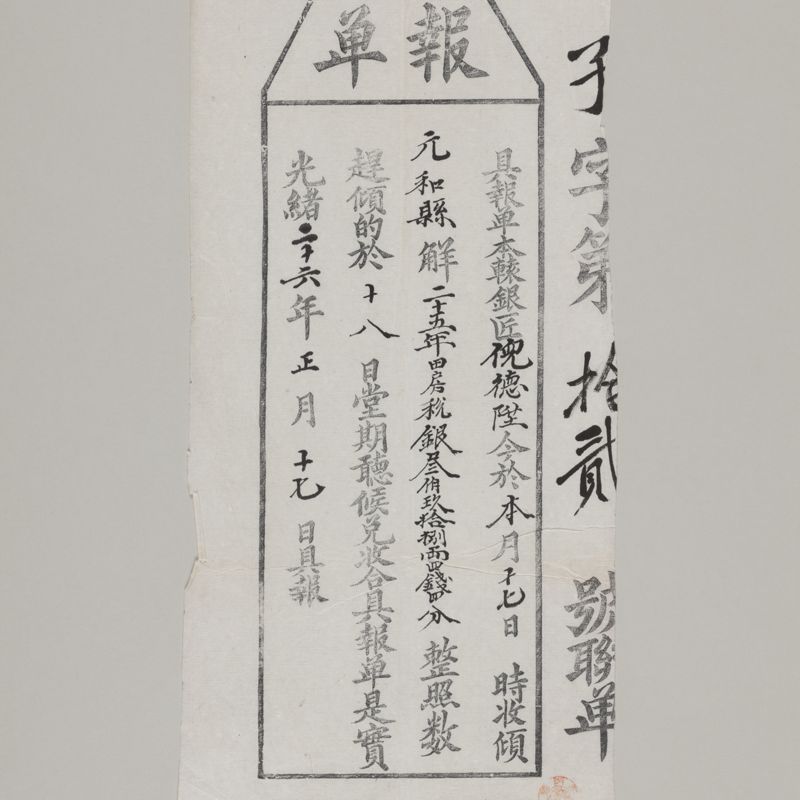 字第拾貳號聯單
報單
具報单本轅銀匠倪德陞今於本月十七日時收傾
元和縣解二十五年田房稅銀叁佰玖拾捌兩四錢四分整照数
趕傾的於十八日堂期聽候兑收合具報单是實
光緒二十六年正月十七日具報